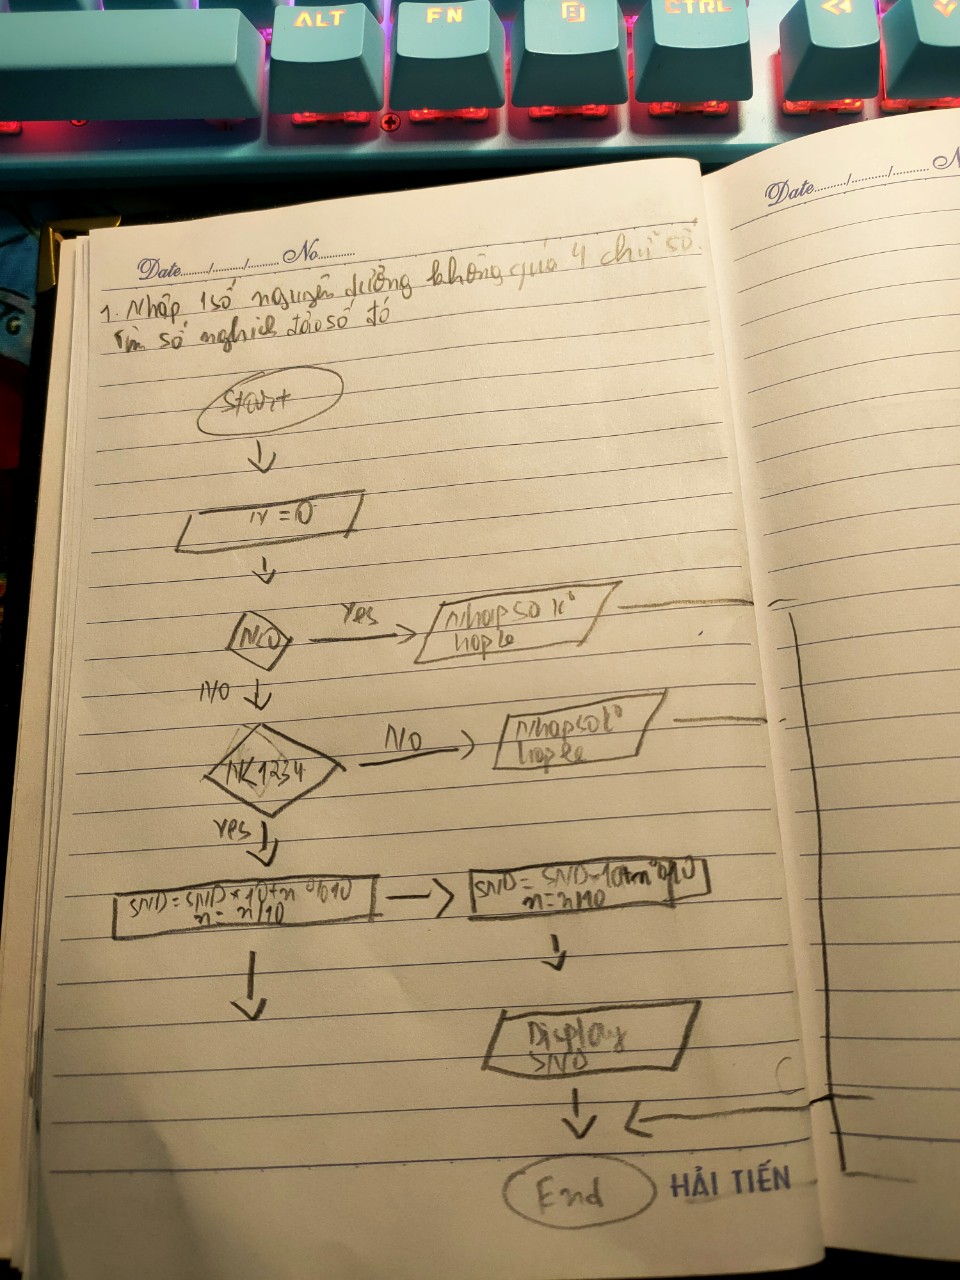 ALT
FN
CTRL
Date......./......./......... No...........
Date........./.........../..........
1. Nhập 1 số nguyên dương không quá 4 chữ số.
Tìm số nghịch đảo số đó
Start
N = 0
N<0
Yes
Nhapso k°
hople
NO
NO
Nhapso k°
hople
yes
SND = SND * 10 + n % 10
n = n/10
SND = SND * 10 + n % 10
n = n/10
Display
SND
End
HẢI TIẾN